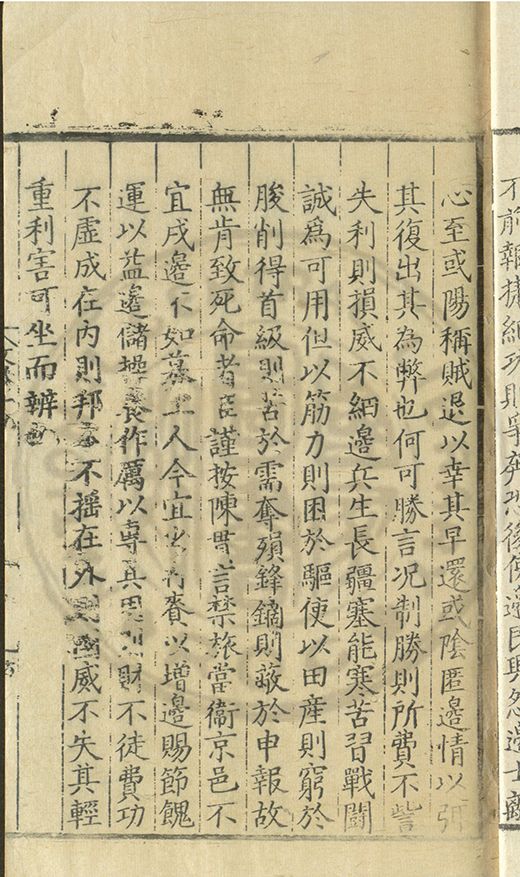 不前報捷紀功則爭奔恐後使邊民興怨邊士離
心至或陽稱賊退以幸其早還或陰匿邊情以弭
其復出其為弊也何可勝言况制勝則所費不訾
失利則損威不網邊兵生長疆塞能寒苦習戰鬪
誠為可用但以筋力則困於驅使以田產則窮於
朘削得首級則苦於需奪殞鋒鏑則蔽於申報故
無肯致死命者臣謹按陳貫言禁旅當衞京邑不
宜戍邊不如募土人今宜賚以增邊賜節餽
運以益邊儲操養作厲以専其則財不徒費功
不虛成在内則邦本不揺在外則國威不失其輕
重利害可坐而辨也